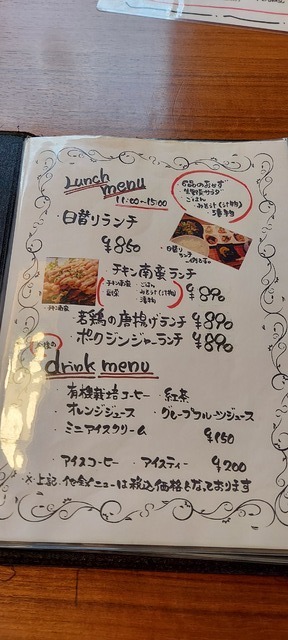 Lunch menu
11:00~15:00
・6品のおかず
生野菜サラダ
ごはん
みそ汁(汁物)
・漬物
・日替りランチ
¥850
・日替り
ランチ
チキン南蛮ランチ
チキン南蛮
副菜
・ごはん
みそ汁(汁物)
漬物
¥890
・チキン南蛮
・若鶏の唐揚げランチ ¥890
・ポークジンジャーランチ ¥890
drink menu
・有機栽培コーヒー ・紅茶
オレンジジュース ・グレープフルーツジュース
・ミニアイスクリーム ¥150
・アイスコーヒー ・アイスティー ¥200
※上記、他全メニューは税込価格となっております